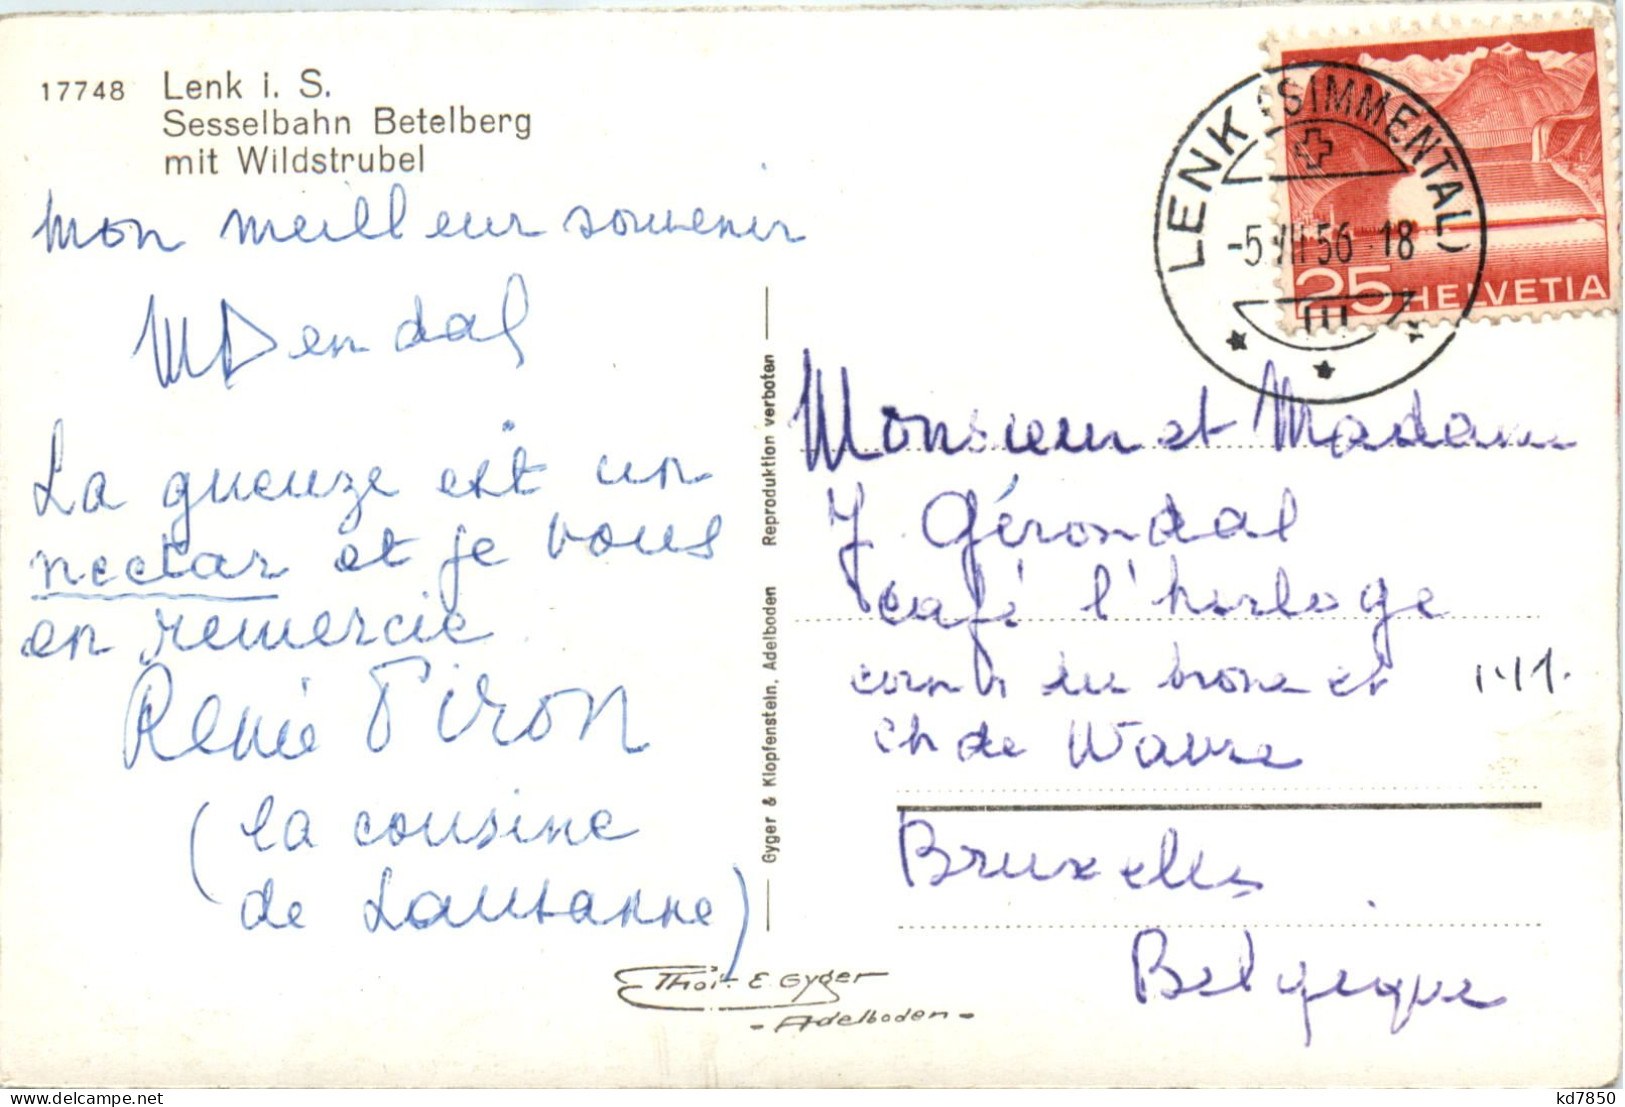 17748 Lenk i. S.
Sesselbahn Betelberg
mit Wildstrubel
mon meilleur souvenir
La gueuze est un
nectar et je vous
en remercie
Renée Piron
(la cousine
de Lausanne)
Gyger & Klopfenstein, Adelboden Reproduktion verboten
Phot. E. Gyger
- Adelboden -
LENK (SIMMENTAL)
-5.VII.56-18
25 HELVETIA
Monsieur et Madame
J Gérondal
café l'horloge
du trone et
ch de Wavre
Bruxelles
Belgique
kd7850